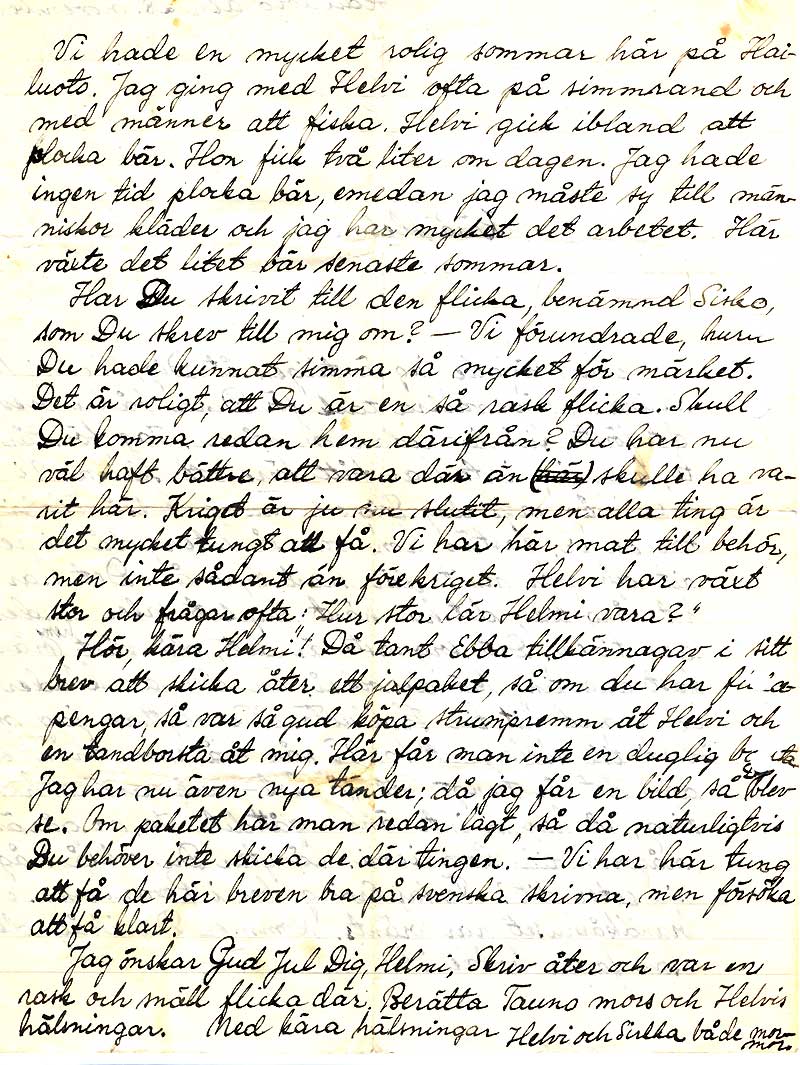 Vi hade en mycket rolig sommar här på Hai-
luoto. Jag ging med Helvi ofta på simmrand och
med männer att fiska. Helvi gick ibland att
plocka bär. Hon fick två liter om dagen. Jag hade
ingen tid plocka bär, emedan jag måste sy till män-
niskor kläder och jag har mycket det arbetet. Här
växte det litet bär senaste sommar.
Har Du skrivit till den flicka, benämnd Sisko,
som Du skrev till mig om? — Vi förundrade, huru
Du hade kunnat simma så mycket för märket.
Det är roligt, att Du är en så rask flicka. Skull
Du komma redan hem därifrån? Du har nu
väl haft bättre, att vara där än (här) skulle ha va-
rit här. Kriget är ju nu slutit, men alla ting är
det mycket tungt att få. Vi har här mat till behör,
men inte sådant än förekriget. Helvi har växt
stor och frågar ofta: "Hur stor lär Helmi vara?"
Hör, kära Helmi! Då tant Ebba tillkännagav i sitt
brev att skicka åter ett julpaket, så om du har
pengar, så var så gud köpa strumpremm åt Helvi och
en tandborsta åt mig. Här får man inte en duglig
Jag har nu även nya tänder; då jag får en bild, så blev
se. Om paketet har man redan lagt, så då naturligtvis
Du behöver inte skicka de där tingen. — Vi har här tung
att få de här breven bra på svenska skrivna, men försöka
att få klart.
Jag önskar Gud Jul Dig, Helmi, Skriv åter och var en
rask och snäll flicka där. Berätta Tauno mors och Helvis
hälsningar. Med kära hälsningar Helvi och Sirkka både mor-
mor.